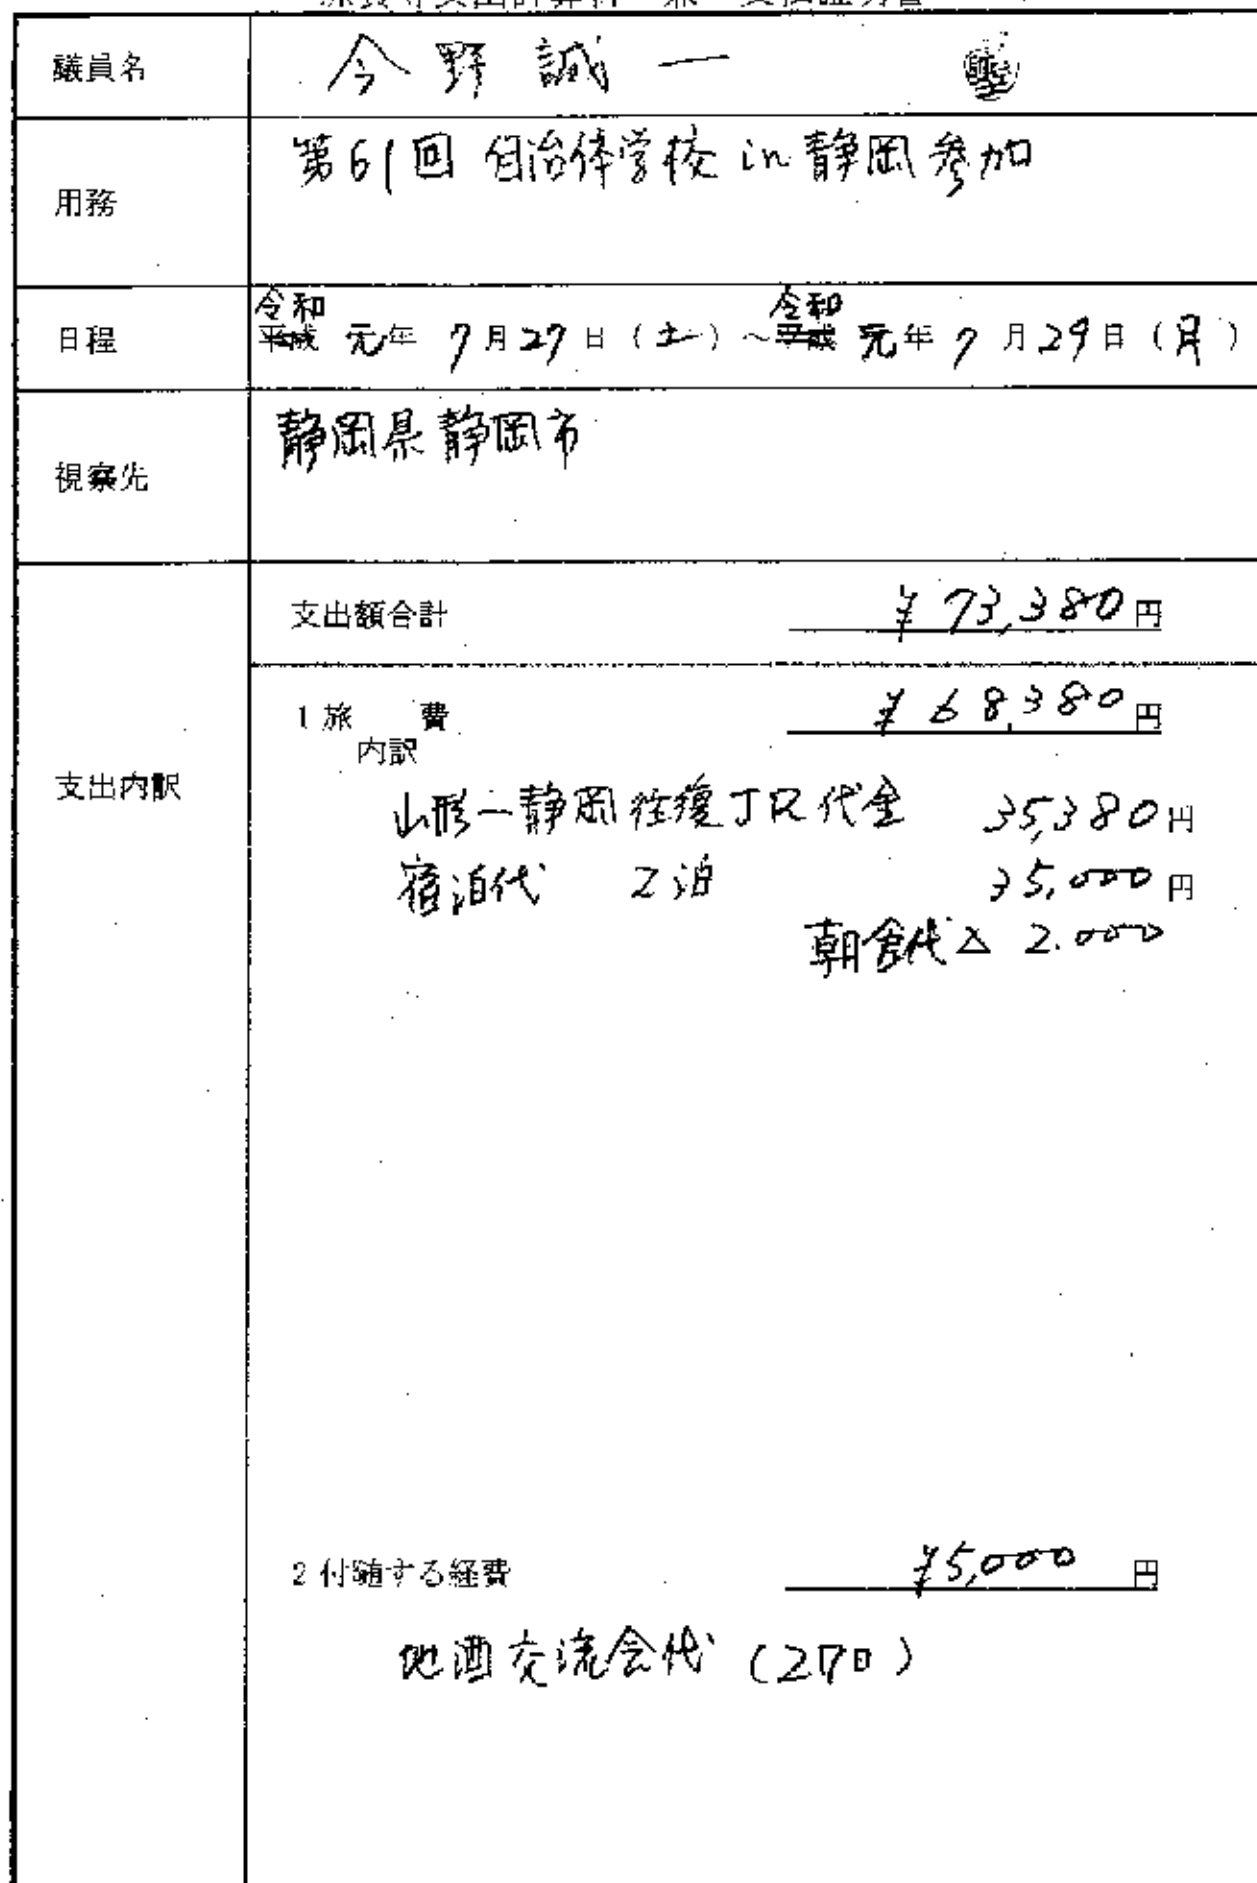 議員名 今野 誠一
用務 第61回 自治体学校 in 静岡 参加
令和 令和
日程 平成 元年 7月27日（土）～平成 元年 7月29日（月）
視察先 静岡県静岡市
支出内訳
支出額合計 ¥73,380円
1 旅 費 ¥68,380円
内訳
山形ー静岡 往復JR代金 35,380円
宿泊代 2泊 35,000円
朝食代△ 2.000
2 付随する経費 ¥5,000 円
地酒交流会代（27日）